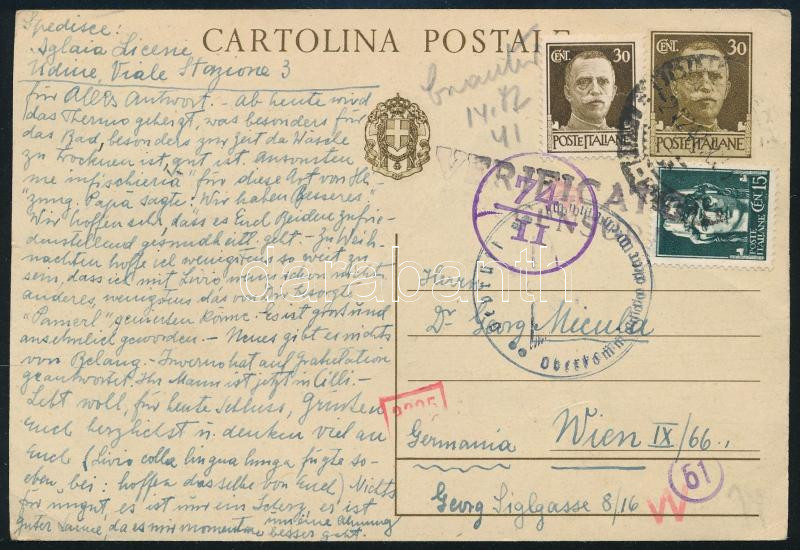 Spedisce:
Aglaia Licenie
Udine, Viale Stazione 3
CARTOLINA POSTALE
14.12
41
CENT. 30
POSTE ITALIANE
CENT. 30
POSTE ITALIANE
POSTE ITALIANE CENT. 15
VERIFICATO
CENSURA
74
II
für Alles Antwort. – Ab heute wird
das Thermo geheizt, was besonders für
das Bad, besonders zur Zeit da Wäsche
zu trocknen ist, gut ist. Ansonsten
"me infischieria" für diese Art von Hei-
zung. Papa sagte: Wir haben Besseres.
Wir hoffen sehr, dass es Euch Beiden zufrie-
denstellend gesundheitl. geht. – Zu Weih-
nachten hoffe ich wenigstens so weit zu
sein, dass ich mit Livio, wenn schon nichts
anderes, wenigstens das von Dir besorgte
"Pamerl" gemessen könne. Es ist gross und
ansehnlich geworden. – Neues gibt es nichts
von Belang. – Inverno hat auf Gratulation
geantwortet. Ihr Mann ist jetzt in Cilli. –
Lebt wohl, für heute Schluss, Grüssen
Euch herzlichst u. denken viel an
Euch (Livio colla lingua lunga fügte so-
eben bei: hoffen dasselbe von Euch) Nichts
für ungut, es ist nur ein Scherz, er ist
guter Laune, da es mir momentan um eine Ahnung
besser geht.
Herrn
Dr Georg Micula
Wien IX/66.,
Germania
Georg Siglgasse 8/16
51